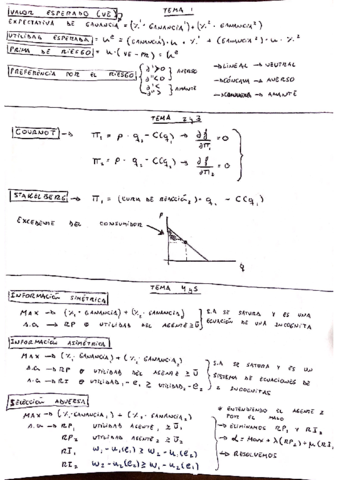 TEMA 1
VALOR ESPERADO (VE)
EXPECTATIVA DE GANANCIA = (%¹ · GANANCIA¹) + (%² · GANANCIA²)
UTILIDAD ESPERADA = uᵉ = (GANANCIA¹) · u · %¹ + (GANANCIA²) · u · %²
PRIMA DE RIESGO = u · (VE - PR) = uᵉ
PREFERENCIA POR EL RIESGO
AVERSO
AMANTE
→ LINEAL → NEUTRAL
→ CÓNCAVA → AVERSO
→ AMANTE
TEMA 2 y 3
COURNOT → Π₁ = P · q₁ - C(q₁) → = 0
Π₂ = P · q₂ - C(q₂) → = 0
STAKELBERG → Π₁ = (CURVA DE REACCIÓN₂) · q₁ - C(q₁)
EXCEDENTE DEL CONSUMIDOR
P
q
TEMA 4 y 5
INFORMACIÓN SIMÉTRICA
MAX → (%₁ · GANANCIA₁) + (%₂ · GANANCIA₂)
S.A → RP UTILIDAD DEL AGENTE ≥ U
S.A SE SATURA Y ES UNA
ECUACIÓN DE UNA INCOGNITA
INFORMACIÓN ASIMÉTRICA
MAX → (%₁ GANANCIA₁) + (%₂ GANANCIA₂)
S.A → RP UTILIDAD DEL AGENTE ≥ U
S.A → RI UTILIDAD₁ - e₁ ≥ UTILIDAD₂ - e₂
S.A SE SATURA Y ES UN
SISTEMA DE ECUACIONES DE
2 INCOGNITAS
SELECCIÓN ADVERSA
MAX → (%₁ GANANCIA₁) + (%₂ GANANCIA₂)
S.A → RP₁ UTILIDAD AGENTE₁ ≥ U₁
RP₂ UTILIDAD AGENTE₂ ≥ U₂
RI₁ W₁ - U₁(e₁) ≥ W₂ - U₁(e₂)
RI₂ W₂ - U₂(e₂) ≥ W₁ - U₂(e₁)
ENTENDIENDO EL AGENTE 2
COMO EL MALO
→ ELIMINAMOS RP₁ Y RI₂
→ L = MAX + λ(RP₂) + μ(RI₁)
→ RESOLVEMOS